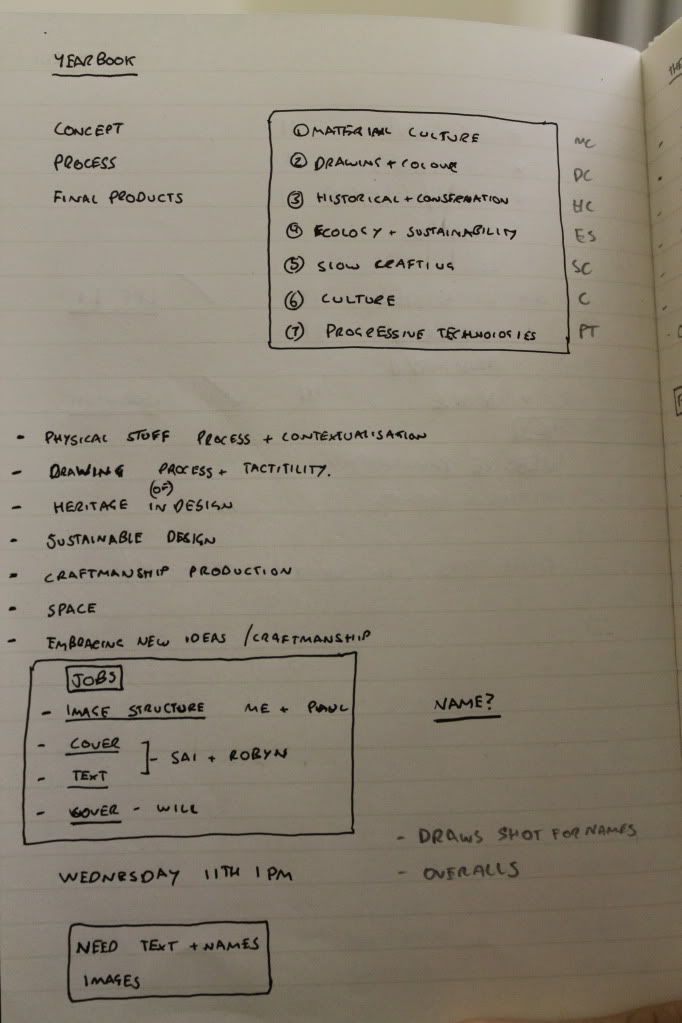 YEARBOOK
CONCEPT
PROCESS
FINAL PRODUCTS
① MATERIAL CULTURE MC
② DRAWING + COLOUR DC
③ HISTORICAL + CONSERVATION HC
④ ECOLOGY + SUSTAINABILITY ES
⑤ SLOW CRAFTING SC
⑥ CULTURE C
⑦ PROGRESSIVE TECHNOLOGIES PT
- PHYSICAL STUFF PROCESS + CONTEXTUALISATION
- DRAWING PROCESS + TACTITILITY.
(OF)
- HERITAGE IN DESIGN
- SUSTAINABLE DESIGN
- CRAFTMANSHIP PRODUCTION
- SPACE
- EMBRACING NEW IDEAS / CRAFTMANSHIP
JOBS
- IMAGE STRUCTURE ME + PAUL
- COVER
- SAI + ROBYN
- TEXT
- COVER - WILL
NAME?
- DRAWS SHOT FOR NAMES
- OVERALLS
WEDNESDAY 11TH 1PM
NEED TEXT + NAMES
IMAGES